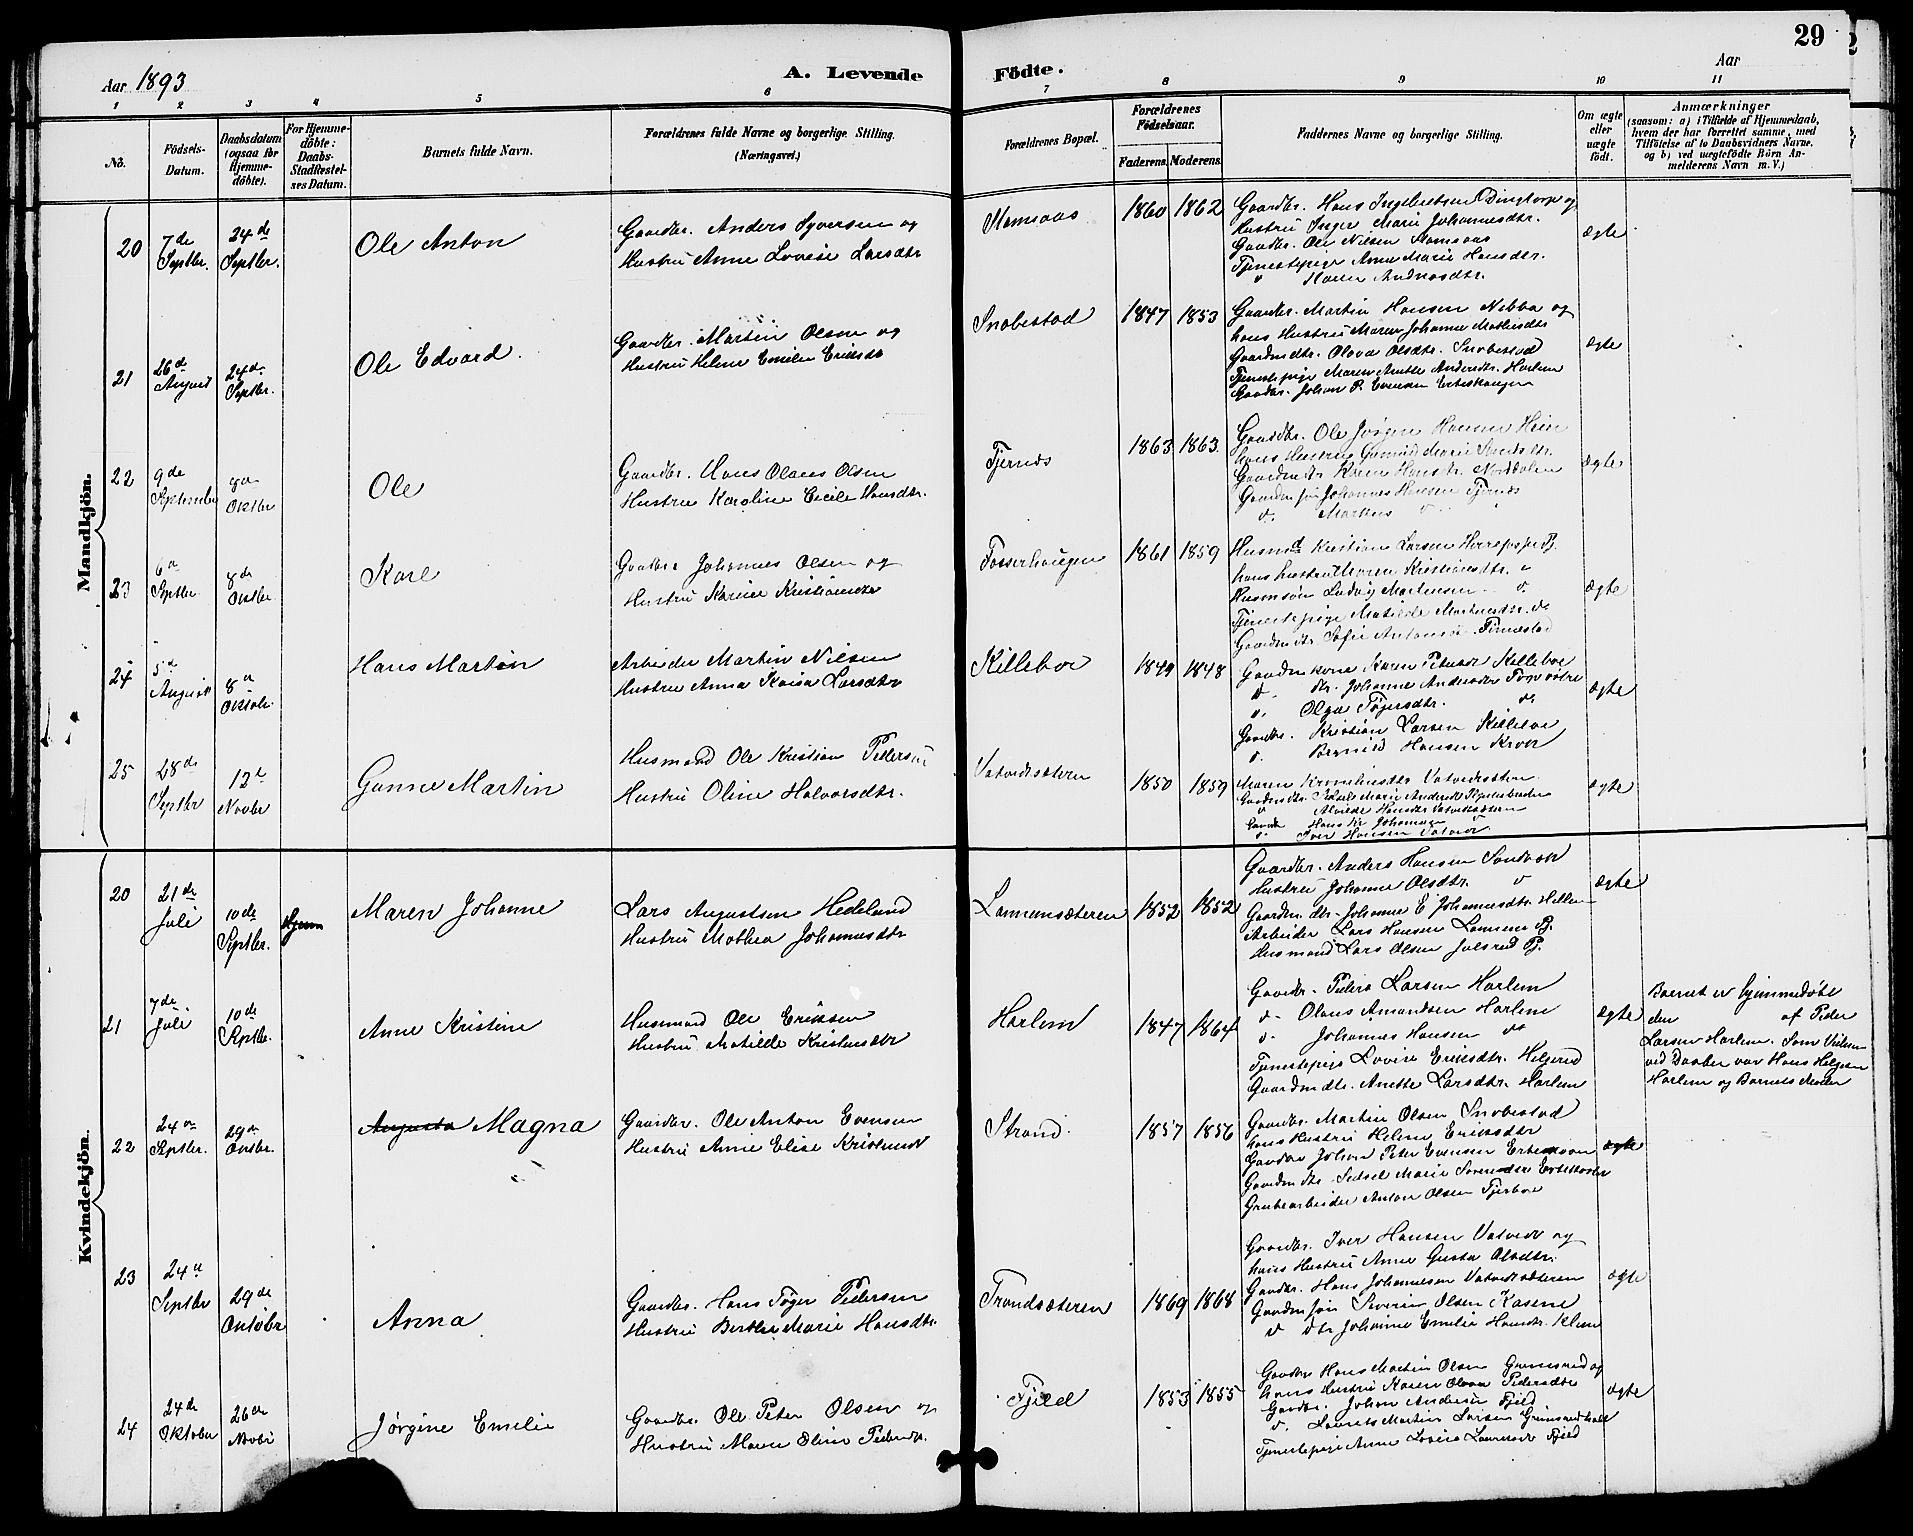 29
Aar 1893
A. Levende
Födte.
Aar
1 2 3 4 5 6 7 8 9 10 11
No.
Födsels-
Datum.
Daabsdatum
(ogsaa for
Hjemme-
döbte).
For Hjemme-
döbte:
Daabs-
Stadfæstel-
ses Datum.
Barnets fulde Navn.
Forældrenes fulde Navne og borgerlige Stilling.
(Næringsvei.)
Forældrenes Bopæl.
Forældrenes
Födselsaar.
Faderens. Moderens.
Faddernes Navne og borgerlige Stilling.
Om ægte
eller
uægte
födt.
Anmærkninger
(saasom: a) i Tilfælde af Hjemmedaab,
hvem der har forrettet samme, med
Tilföielse af to Daabsvidners Navne,
og b) ved uægtefödte Börn An-
melderens Navn m. V.)
Mandkjön.
20
7de
Septbr.
24de
Septbr.
Ole Anton
Gaardbr. Anders Syversen og
Hustru Anne Lovise Larsdtr
1860 1862
Gaardbr. Hans Ingebretsen
Hustru Inger Marie Johannesdtr.
Gaardbr. Ole Nilsen
Tjenestepige Anne Marie Hansdtr.
Maren Andreasdtr.
ægte
21
26de
August
24de
Septbr.
Ole Edvard.
Gaardbr. Martin Olsen og
Hustru Helene Emilie Eriksdtr
Snobestad
1847 1853
Gaardbr. Martin Hansen Nebba og
hans Hustru Maren Johanne Mathisdtr
Gaardmdtr. Olava Olsdtr. Snobestad
Tjenestepige Maren Anette Andersdtr. Harlem
Gaardbr. Johan P. Evensen
ægte
22
9de
September
8de
Oktbr
Ole
Gaardbr. Hans Olaus Olsen
Hustru Karoline Cecile Hansdtr.
Tjernes
1863 1863
Gaardbr. Ole Jørgen Hansen Hein
hans Hustru Gunild Marie
Gaardmdtr Karen Hansdtr.
Gaardm søn Johannes Hansen Tjernes
Markus
ægte
23
6te
Septbr.
8de
Oktbr
Karl
Gaardbr Johannes Olsen og
Hustru Karine Kristiansdtr
Fosserhaugen
1861 1859
Husmd Kristian Larsen
hans hustru Maren Kristiansdtr.
Husmsøn Ludvig Martinsen
Tjenestepige Matilde Martinsdtr. do
Gaardmdtr. Sofie Antonsdtr.
ægte
24
5te
August
8de
Oktobr.
Hans Martin
Arbeider Martin Nilsen
Hustru Anna Kaisa Larsdtr
Killeboe
1849 1848
Gaardm kone Karen Petersdtr Killeboe
dtr. Johanne Andersdtr
Olga Tøgersdtr. do
Gaardbr. Kristian Larsen Killeboe
Bernild Hansen
ægte
25
28de
Septbr
12te
Novbr
Gunne Martin
Husmand Ole Kristian Pedersen
Hustru Oline Halvorsdtr.
Vatvedtsæteren
1850 1859
Maren Kornelinsdtr Vatvedtsæteren
Gaardmdtr. Marie Andersdtr
Alvilde Hansdtr Vatvedtsæteren
Gaardbr Hans Kr Johansen
Iver Hansen Vatvedt
ægte
Kvindekjön.
20
21de
Juli
10de
Septbr.
Hjem
Maren Johanne
Lars Augustsen Hedelund
Hustru Mathea Johannesdtr
1852 1852
Gaardbr. Anders Hansen
Hustru Johanne Olsdtr.
Gaardm. dtr. Johanne E. Johannesdtr.
Arbeider Lars Hansen
Husmand Lars Olsen
ægte
21
7de
Juli
10de
Septbr.
Anne Kristine
Husmand Ole Eriksen
Hustru Matilde Kristensdtr
Harlem
1847 1864
Gaardbr. Peder Larsen Harlem
do. Olaus Amundsen Harlem
Johannes Hansen do
Tjenestepige Lovise Eriksdtr. Helgerød
Gaardmdtr. Anette Larsdtr. Harlem
ægte
Barnet er hjemmedøbt
den af Peder
Larsen Harlem. Som Vidner
ved Daaben var Hans Helgesen
Harlem og Barnets Moder
22
24de
Septbr.
29de
Oktbr.
Augusta Magna
Gaardbr. Ole Anton Evensen
Hustru Anne Elise
Strand.
1857 1856
Gaardbr. Martin Olsen Snobestad
hans Hustru Helene Eriksdtr
Gaardbr Johan Peter Evensen
Gaardmdtr. Sedsel Marie Sørensdtr
Grubearbeider Anton Olsen
ægte
23
24de
Septbr
29de
Oktobr
Anna
Gaardbr. Hans Tøger Pedersen
Hustru Berthe Marie Hansdtr.
Trondsæteren
1869 1868
Gaardbr. Iver Hansen Vatvedt og
hans Hustru Anne Gusta Olsdtr.
Gaardbr. Hans Johannesen Vatvedtsæteren
Gaardm søn Severin Olsen Kasene
dtr Johanne Emilie Hansdtr.
ægte
24
24de
Oktober
26de
Novbr
Jørgine Emilie
Gaardbr. Ole Peter Olsen og
Hustru Maren Eline Pedersdtr.
Fjeld
1853 1855
Gaardbr Hans Martin Olsen Grimsrød og
hans Hustru Karen Olava Pedersdtr
Gaardbr. Johan Andersen Fjeld
Laurits Martin Larsen
Tjenestepige Anne Lovise Fjeld
ægte